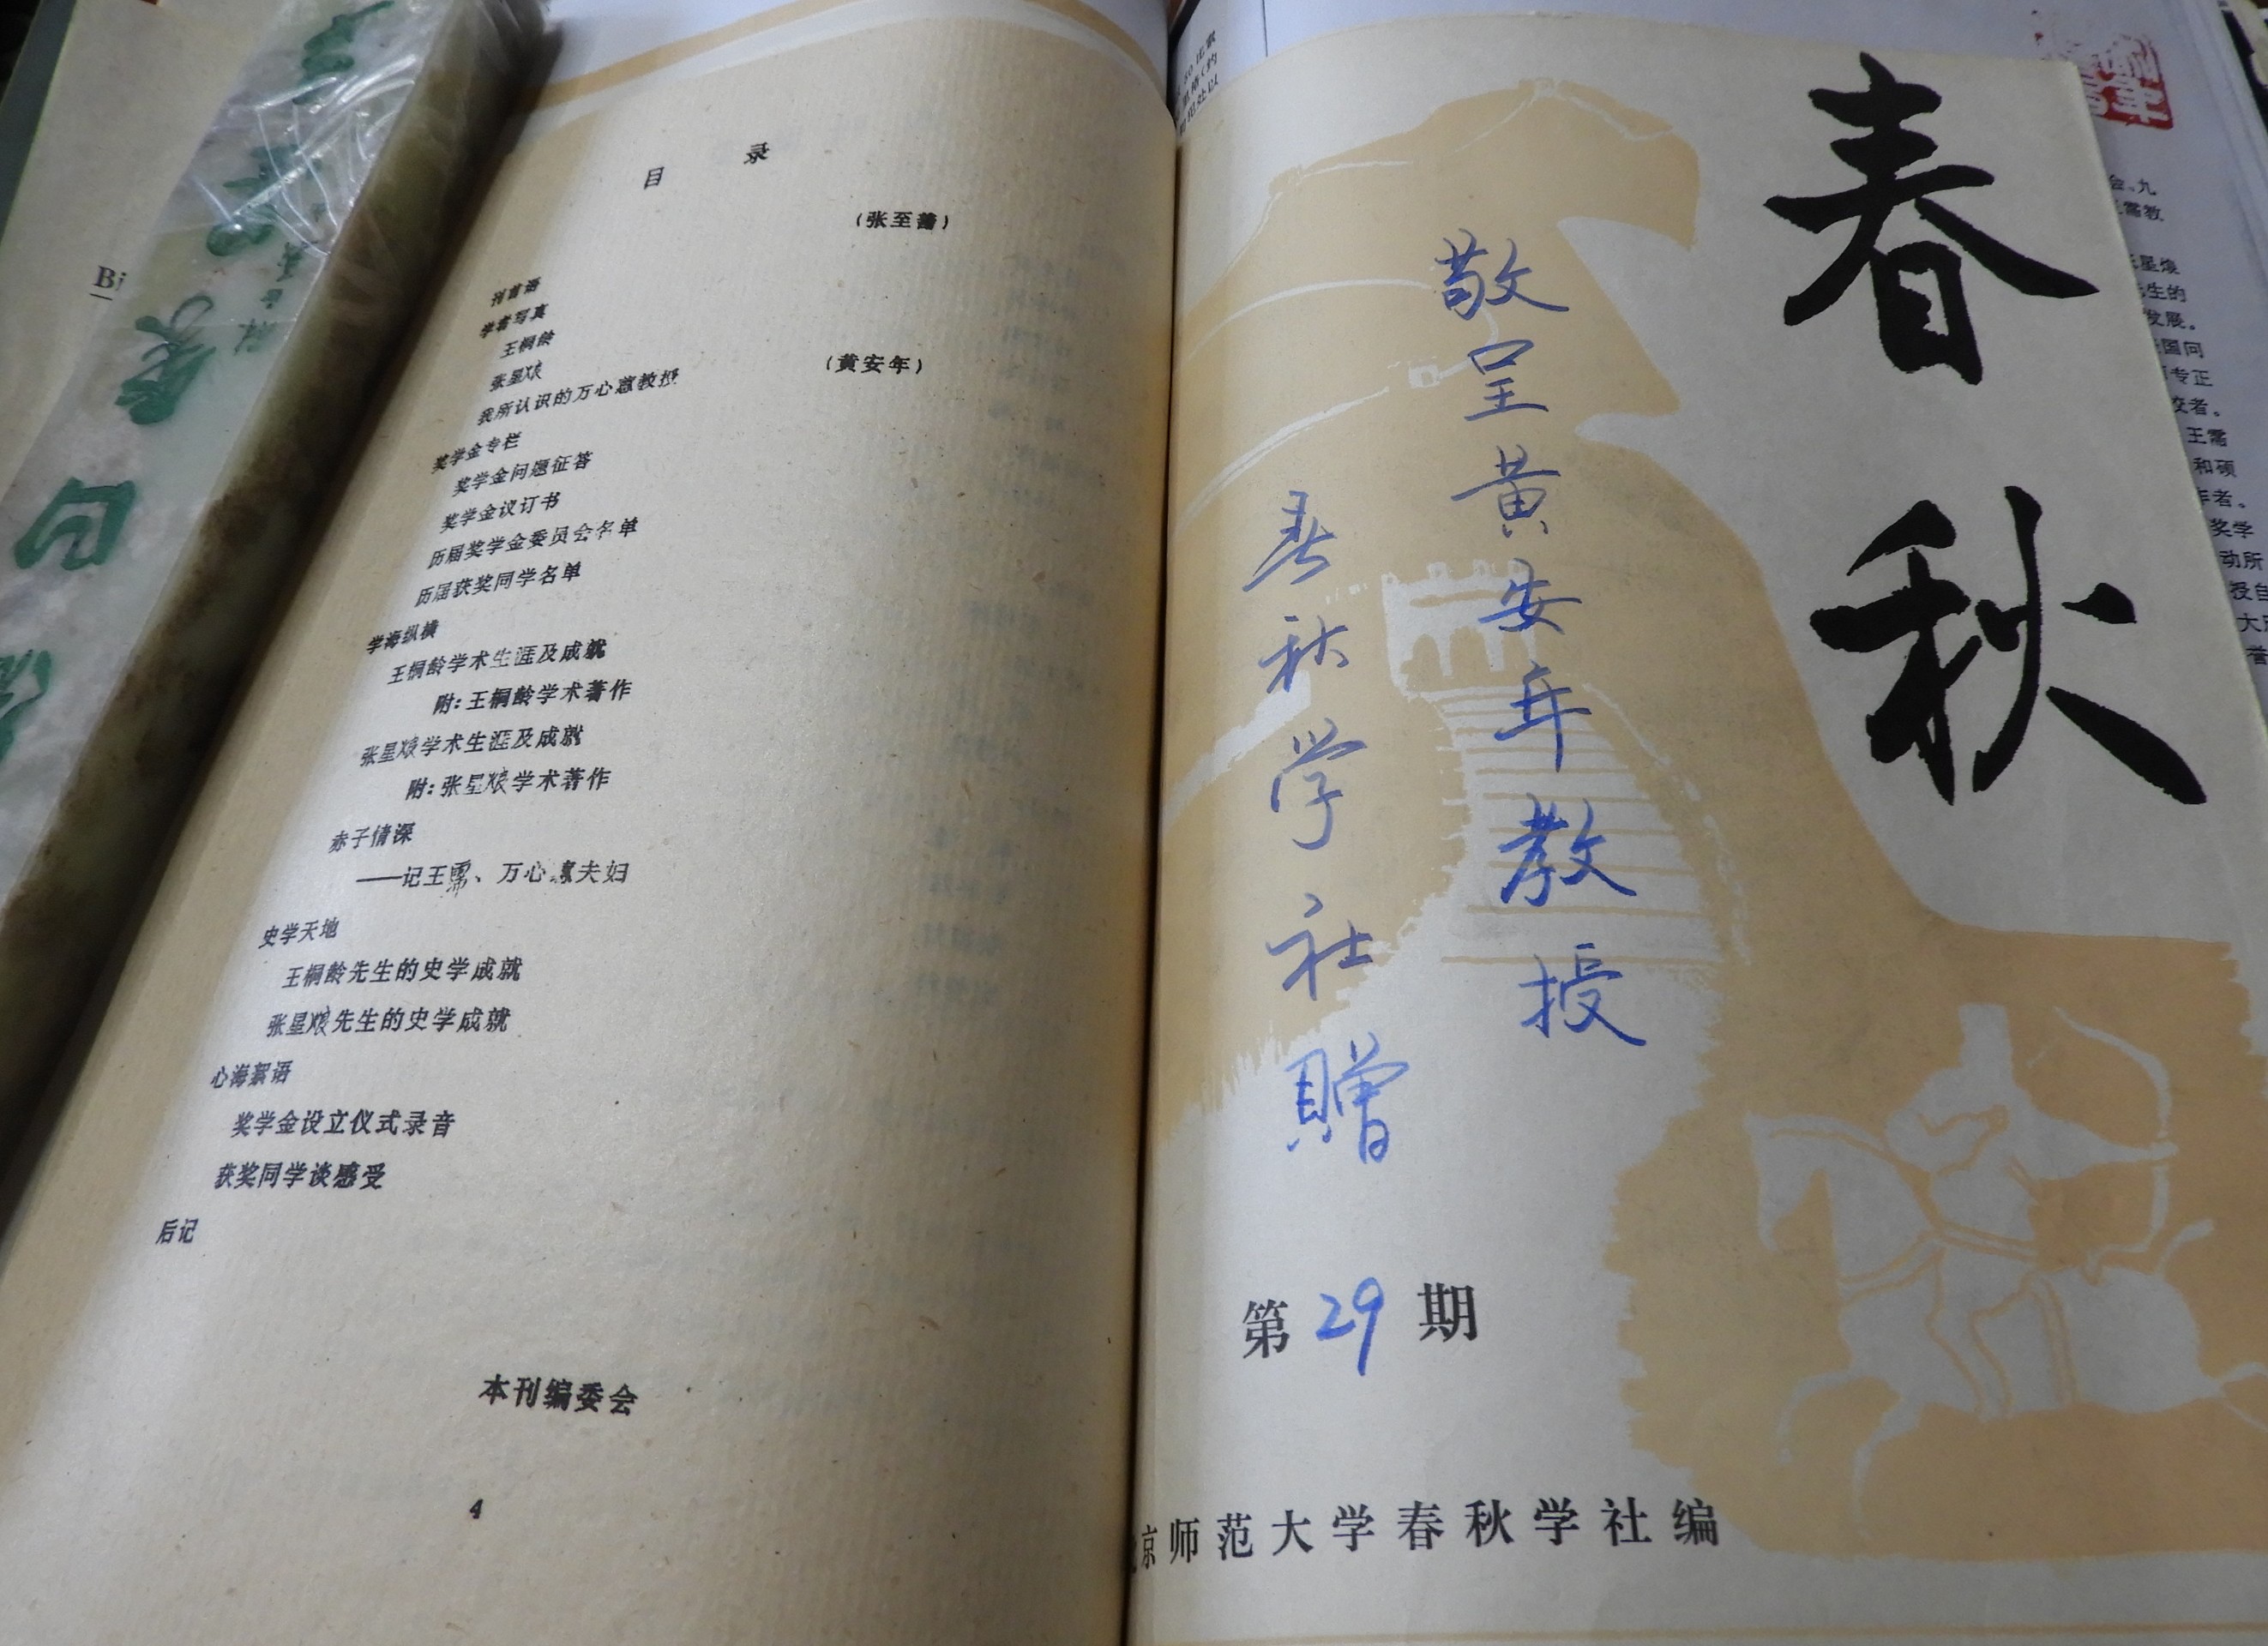 目 录
(张至善)
刊首语
学者写真
王桐龄
张星烺
我所认识的万心蕙教授
(黄安年)
奖学金专栏
奖学金问题征答
奖学金议订书
历届奖学金委员会名单
历届获奖同学名单
学海纵横
王桐龄学术生涯及成就
附:王桐龄学术著作
张星烺学术生涯及成就
附:张星烺学术著作
赤子情深
——记王霈、万心蕙夫妇
史学天地
王桐龄先生的史学成就
张星烺先生的史学成就
心海絮语
奖学金设立仪式录音
获奖同学谈感受
后记
本刊编委会
4
春秋
敬呈黄安年教授
春秋学社贈
第29期
京师范大学春秋学社编
Bi
会、九
霈教
星烺
生的
发展。
国问
专正
校者。
王霈
和硕
作者。
奖学
动所
授自